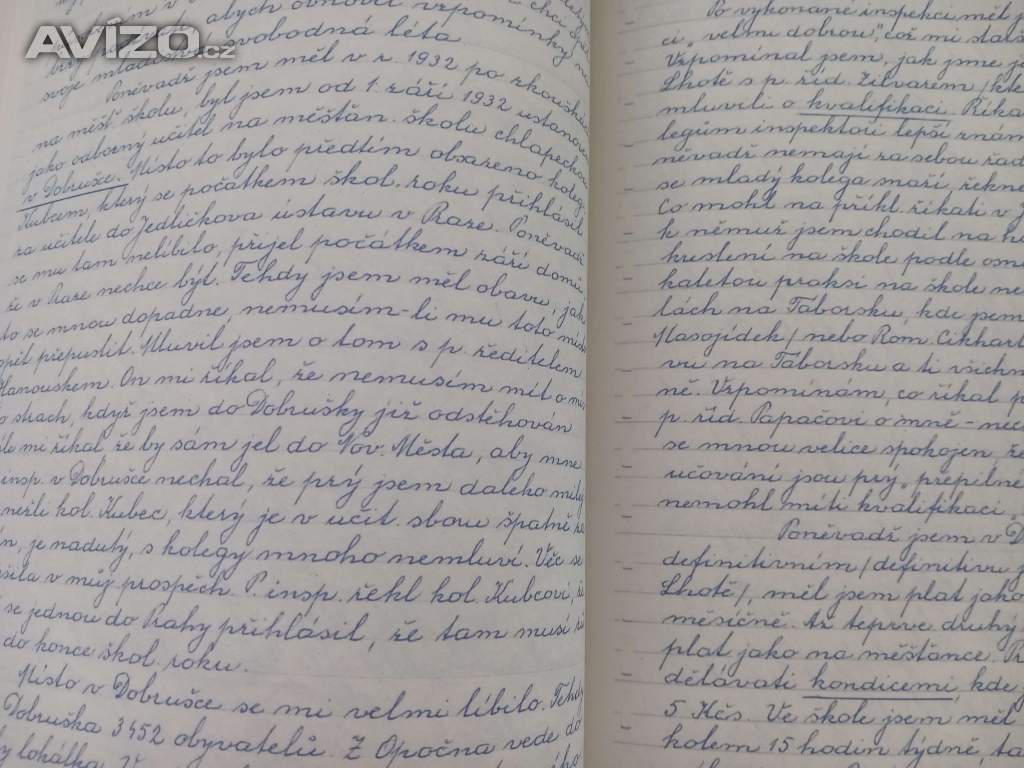 AVÍZO.cz
abych obnovil vzpomínky na
svoje mladá svobodná léta.
Poněvadž jsem měl v r. 1932 po zkoušky
na měšť. školu, byl jsem od 1. září 1932 ustanoven
jako odborný učitel na měšťan. školu chlapeckou
v Dobrušce. Místo to bylo předtím obsazeno kolegou
Kubcem, který se počátkem škol. roku přihlásil
za učitele do Jedličkova ústavu v Praze. Poněvadž
se mu tam nelíbilo, přijel počátkem září domů,
že v Praze nechce být. Tehdy jsem měl obavu, jak
to se mnou dopadne, nemusím-li mu toto místo
opět přepustit. Mluvil jsem o tom s p. ředitelem
Hanouskem. On mi říkal, že nemusím mít o mí-
sto strach, když jsem do Dobrušky již odstěhován
mi říkal že by sám jel do Nov. Města, aby mne
insp. v Dobrušce nechal, že prý jsem daleko milý
nežli kol. Kubec, který je v učit. sboru špatně
je nadutý, s kolegy mnoho nemluví. Věc se
v můj prospěch. P. insp. řekl kol. Kubcovi,
se jednou do Prahy přihlásil, že tam musí
do konce škol. roku.
Místo v Dobrušce se mi velmi líbilo. Tehdy
Dobruška 3452 obyvatelů. Z Opočna vede do
lokálka.
Po vykonané inspekci měl
ci „velmi dobrou“, což mi
Vzpomínal jsem, jak jsme
Lhotě s p. říd. Žilvarem
mluvili o kvalifikaci. Říka
legům inspektoři lepší znám
něvadž nemají za sebou řad
se mladý kolega snaží, řekne
Co mohl na příkl. říkati v
k němuž jsem chodil na
kreslení na škole podle osno
haletou praksi na škole
lách na Táborsku, kde jsem
Masojídek/nebo Rom. Cikhart
vu na Táborsku a ti všichn
ně. Vzpomínám, co říkal
p. říd. Papačovi o mně - nec
se mnou velice spokojen, že
učování jsou prý „přepilné
nemohl míti kvalifikaci
Poněvadž jsem v D
definitivním/definitivu
Lhotě/, měl jsem plat jako
měsíčně. Až teprve druhý
plat jako na měšťance.
dělávati kondicemi, kde
5 Kčs. Ve škole jsem měl
kolem 15 hodin týdně, ta